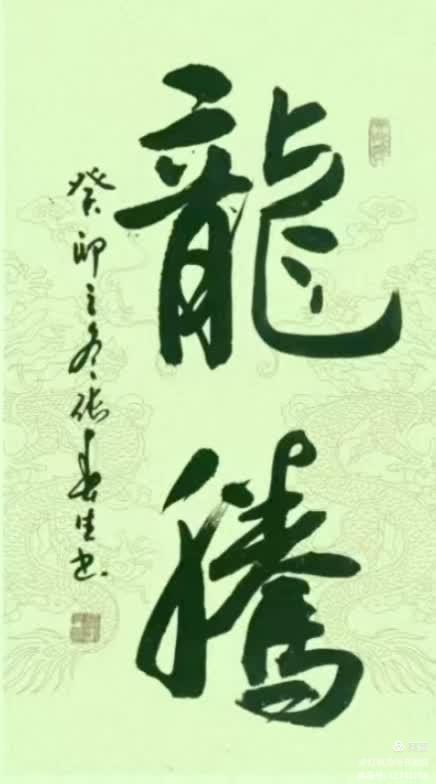 龍騰
癸卯之冬張春生書